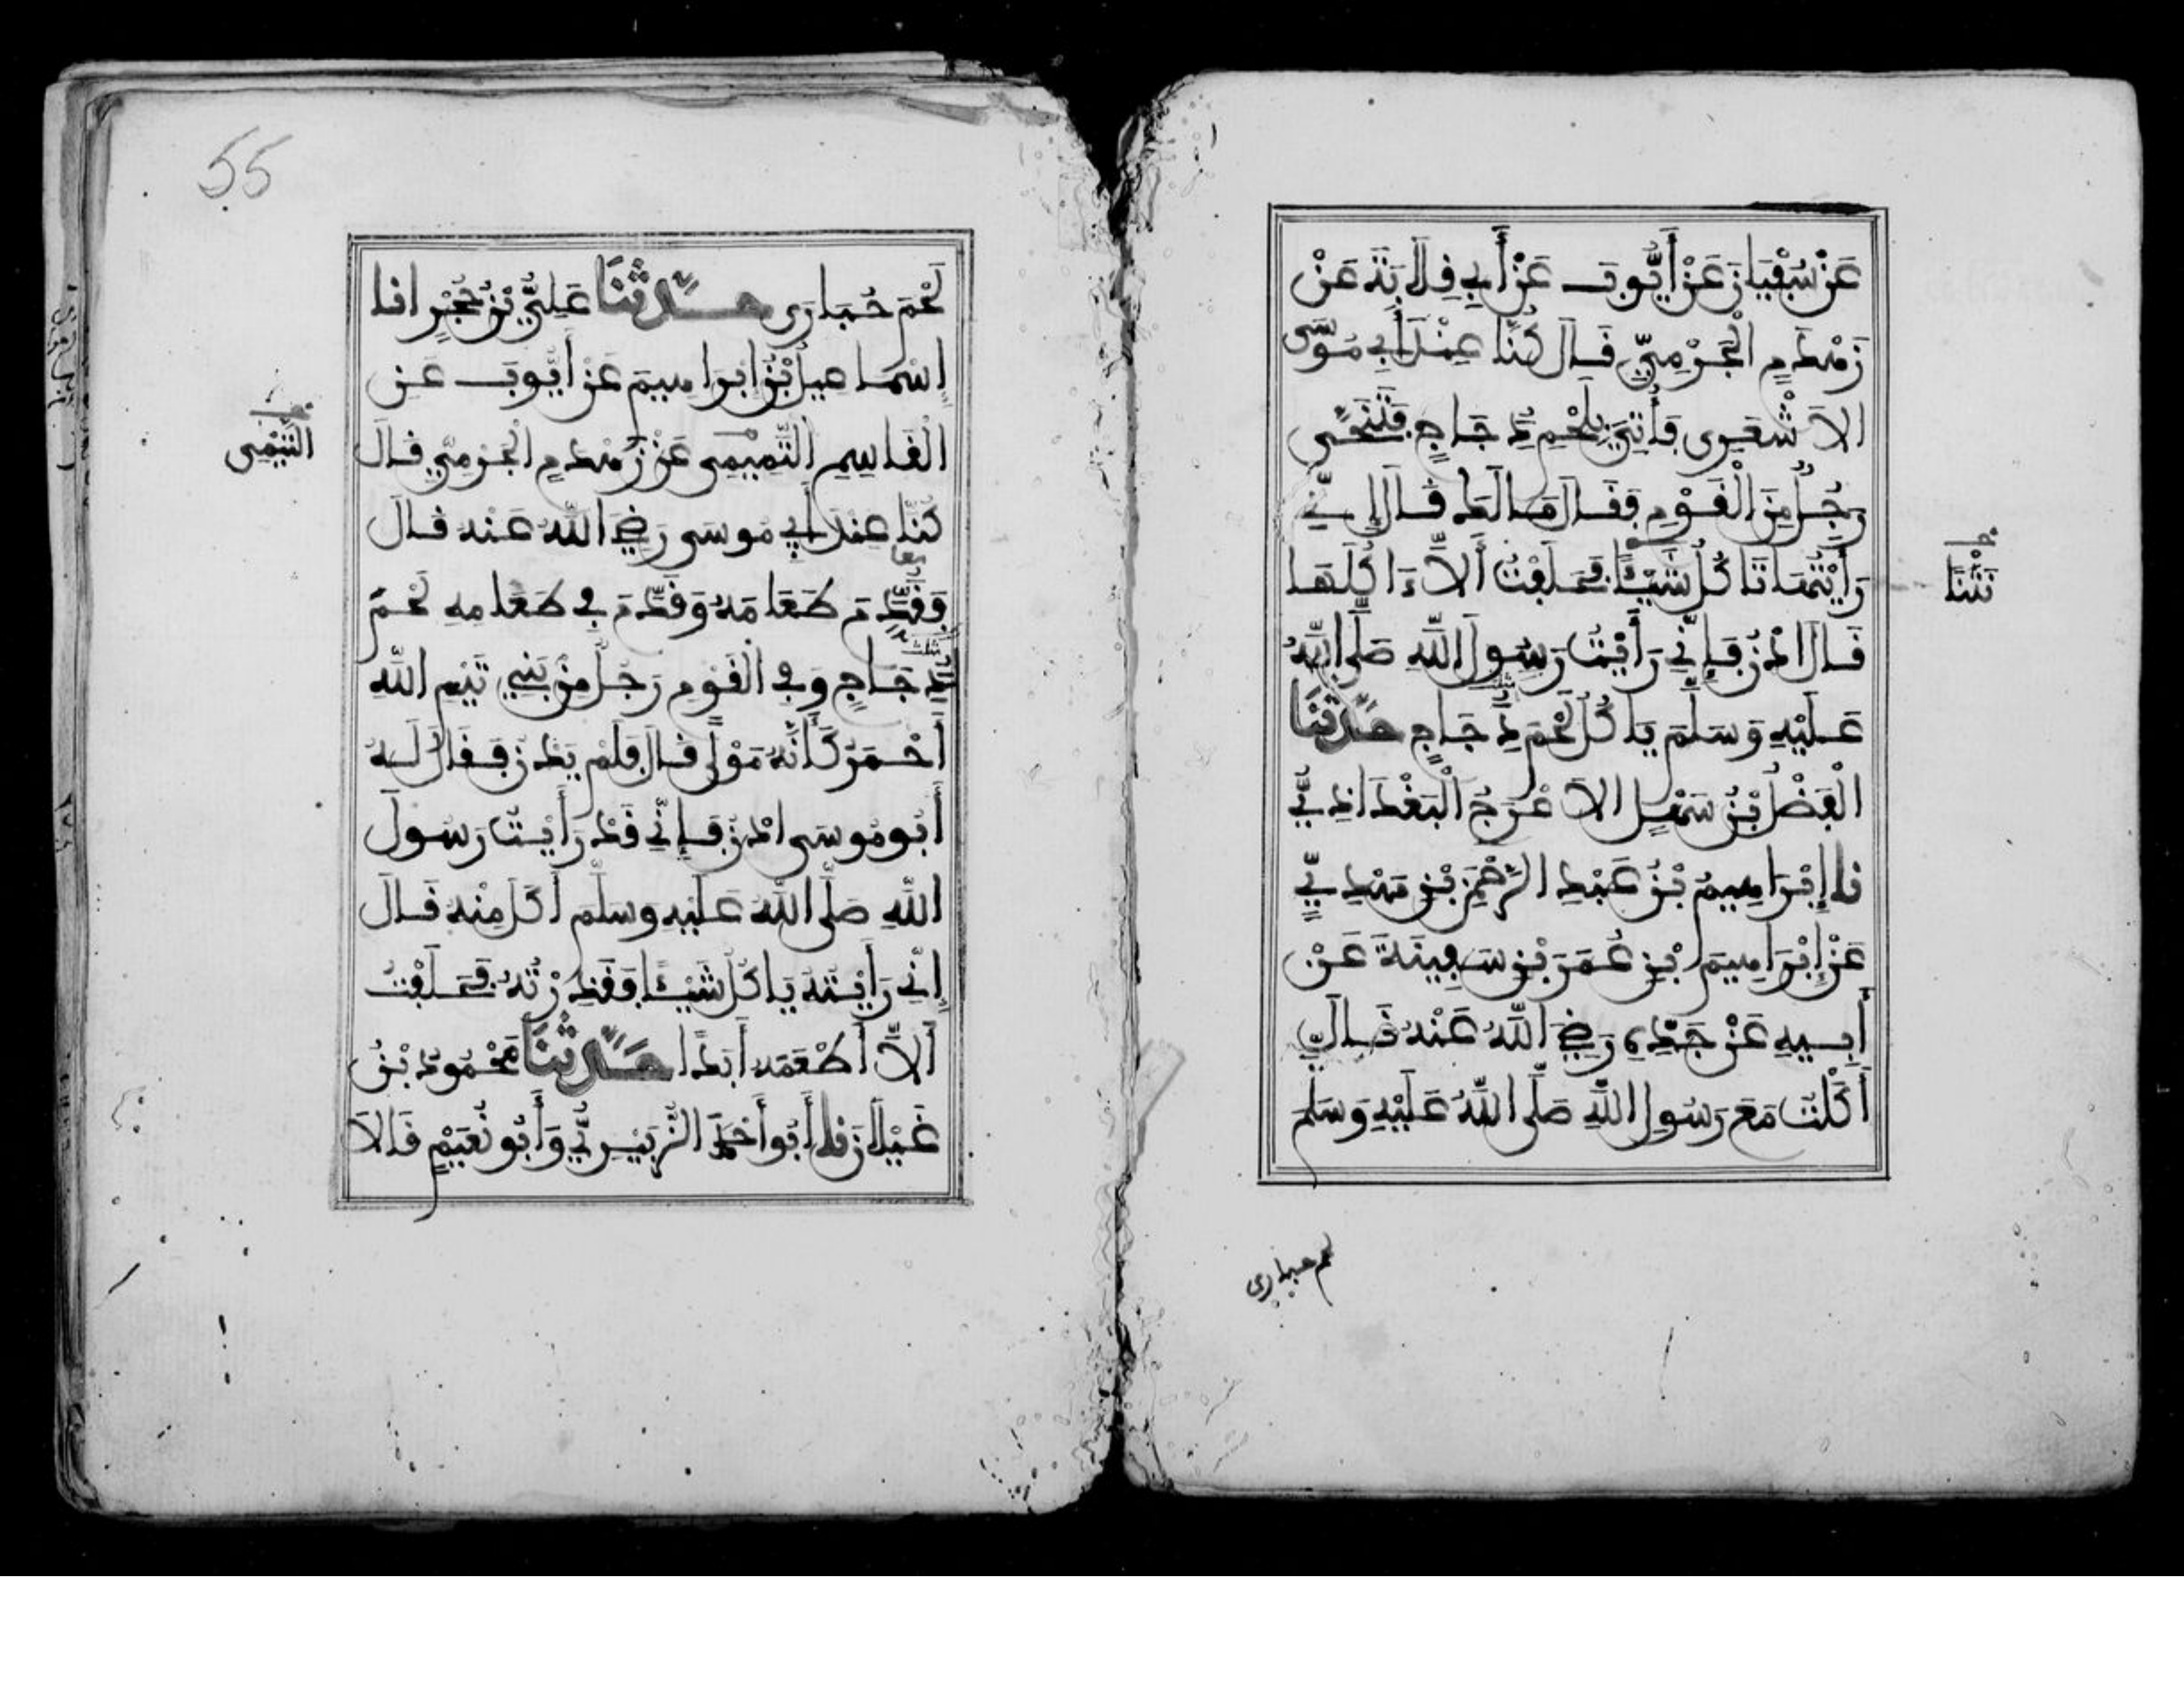 عَنْ سُفْيَانَ عَنْ أَيُّوبَ عَنْ أَبِي قِلَابَةَ عَنْ
زَهْدَمٍ الْجَرْمِيِّ قَالَ كُنَّا عِنْدَ أَبِي مُوسَى
الاَشْعَرِي فَأُتِيَ بِلَحْمِ دَجَاجٍ فَتَنَحَّى
رَجُلٌ مِنَ الْقَوْمِ فَقَالَ مَا لَكَ قَالَ إِنِّي
رَأَيْتُهَا تَاكُلُ شَيْئًا فَحَلَفْتُ أَلاَّ ءَاكُلَهَا
نَتْنًا
قَالَ ادْنُ فَإِنِّي رَأَيْتُ رَسُولَ اللَّهِ صَلَّى اللَّهُ
عَلَيْهِ وَسَلَّمَ يَاكُلُ لَحْمَ دَجَاجٍ حَدَّثَنَا
الْفَضْلُ بْنُ سَهْلٍ الاَعْرَجُ الْبَغْدَاذِيُّ
نا إِبْرَاهِيمُ بْنُ عَبْدِ الرَّحْمَنِ بْنِ مَهْدِيٍّ
عَنْ إِبْرَاهِيمَ بْنِ عُمَرَ بْنِ سَفِينَةَ عَنْ
أَبِيهِ عَنْ جَدِّهِ رَضِيَ اللَّهُ عَنْهُ قَالَ
أَكَلْتُ مَعَ رَسُولِ اللَّهِ صَلَّى اللَّهُ عَلَيْهِ وَسَلَّمَ
لحم حبارى
55
لَحْمَ حُبَارَى حَدَّثَنَا عَلِيُّ بْنُ حُجْرٍ انا
إِسْمَاعِيلُ بْنُ إِبْرَاهِيمَ عَنْ أَيُّوبَ عَنِ
الْقَاسِمِ التَّمِيمِي عَنْ زَهْدَمٍ الْجَرْمِيِّ قَالَ
التَّيْمِي
كُنَّا عِنْدَ أَبِي مُوسَى رَضِيَ اللَّهُ عَنْهُ قَالَ
فَقَدَّمَ طَعَامَهُ وَقَدَّمَ فِي طَعَامِهِ لَحْمَ
دَجَاجٍ وَفِي الْقَوْمِ رَجُلٌ مِنْ بَنِي تَيْمِ اللَّهِ
أَحْمَرُ كَأَنَّهُ مَوْلًى قَالَ فَلَمْ يَدْنُ فَقَالَ لَهُ
أَبُو مُوسَى ادْنُ فَإِنِّي قَدْ رَأَيْتُ رَسُولَ
اللَّهِ صَلَّى اللَّهُ عَلَيْهِ وَسَلَّمَ أَكَلَ مِنْهُ قَالَ
إِنِّي رَأَيْتُهُ يَاكُلُ شَيْئًا فَقَذِرْتُهُ فَحَلَفْتُ
أَلاَّ أَطْعَمَهُ أَبَدًا حَدَّثَنَا مَحْمُودُ بْنُ
غَيْلَانَ نا أَبُو أَحْمَدَ الزُّبَيْرِيُّ وَأَبُو نُعَيْمٍ قَالَا